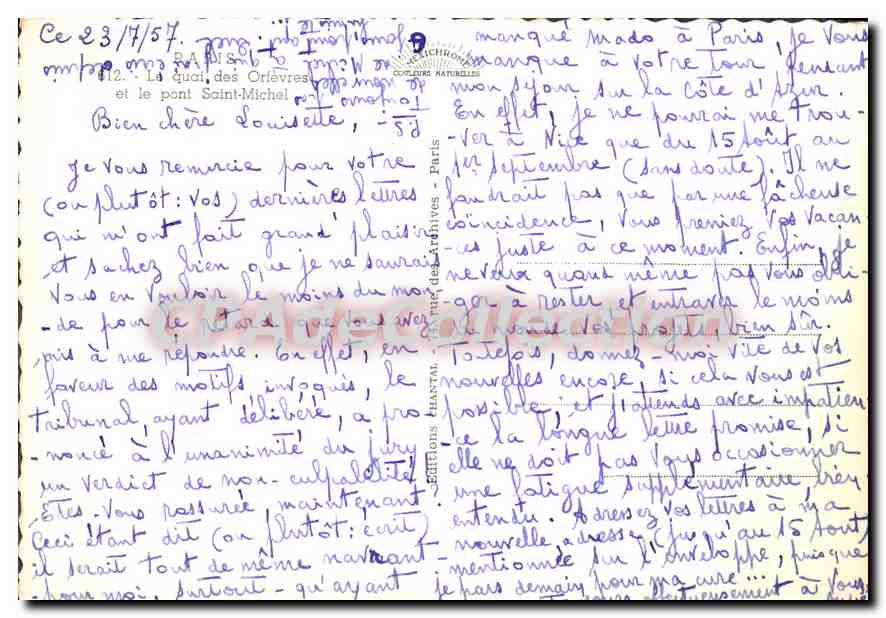 Ce 23/7/57.
PARIS
612. - Le quai des Orfèvres
et le pont Saint-Michel
Bien chère Louisette,
Je vous remercie pour votre
(ou plutôt : vos) dernières lettres
qui m'ont fait grand plaisir
et sachez bien que je ne saurais
vous en vouloir le moins du mon-
-de pour le retard que vous avez
pris à me répondre. En effet, en
faveur des motifs invoqués, le
tribunal, ayant délibéré, a pro-
-noncé à l'unanimité du jury
un verdict de non-culpabilité.
Êtes-vous rassurée, maintenant ?
Ceci étant dit (ou plutôt : écrit)
il serait tout de même navrant
pour moi, surtout qu'ayant
MEXICHROME
COULEURS NATURELLES
Editions CHANTAL - rue des Archives - Paris
manqué Mado à Paris, je vous
manque à votre tour pendant
mon séjour sur la Côte d'Azur.
En effet, je ne pourrai me trou-
-ver à Nice que du 15 Août au
1er septembre (sans doute). Il ne
faudrait pas que par une fâcheuse
coïncidence, vous preniez vos vacan-
-ces juste à ce moment. Enfin, je
ne veux quand même pas vous obli-
-ger à rester et entraver le moins
du monde vos projets, bien sûr.
Toutefois, donnez-moi vite de vos
nouvelles encore, si cela vous est
possible, et j'attends avec impatien-
-ce la longue lettre promise, si
elle ne doit pas vous occasionner
une fatigue supplémentaire, bien
entendu. Adressez vos lettres à ma
nouvelle adresse (jusqu'au 15 Août)
mentionnée sur l'enveloppe, puisque
je pars demain pour ma cure...
affectueusement à vous
P.S. -
de nouvelles de Michel
CPA de Collection